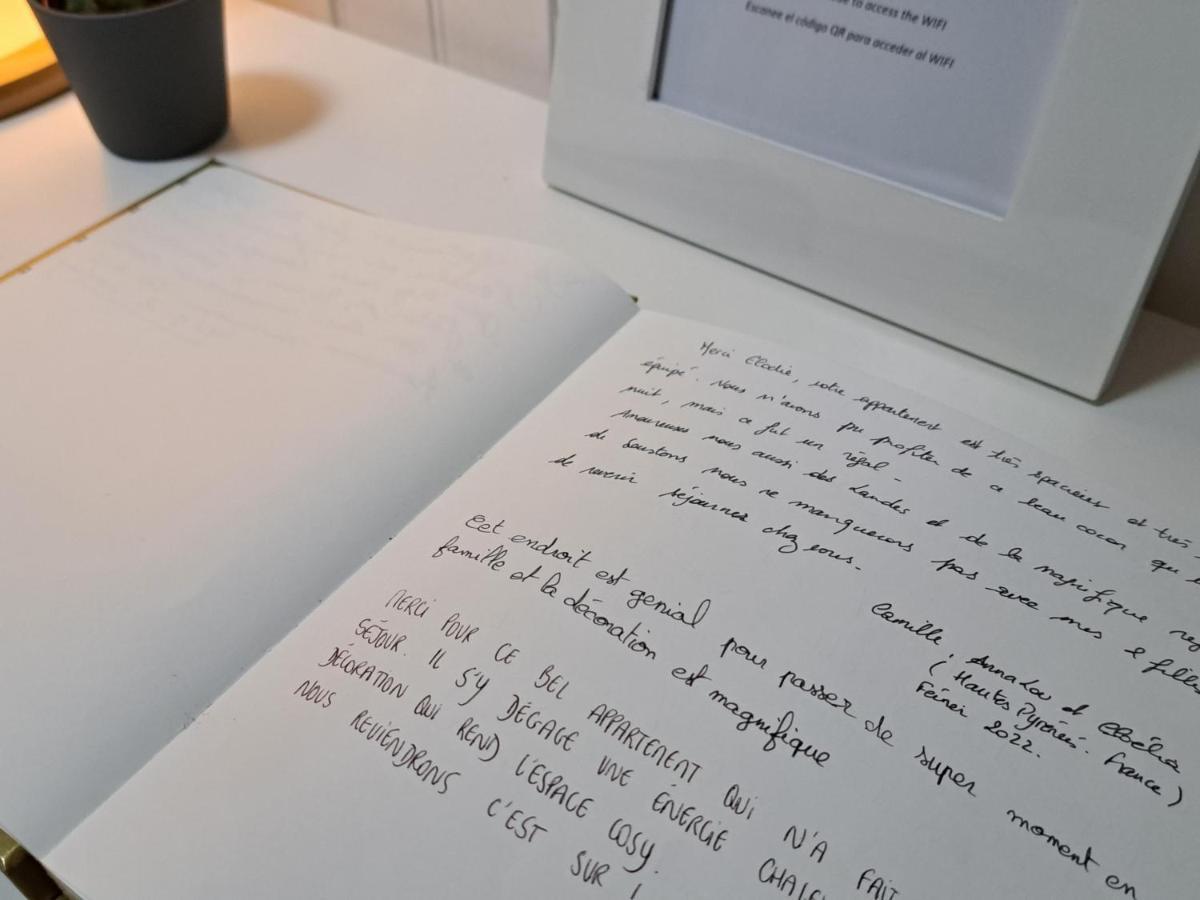 to access the WIFI
Escanee el código QR para acceder al WIFI
Merci Elodie, votre appartement est très spacieux et très
équipé. Nous n'avons pu profiter de ce beau cocon qu'
nuit, mais ce fut un régal -
Amoureuses nous aussi des Landes et de la magnifique
de Soustons nous ne manquerons pas avec mes 2 filles
de revenir séjourner chez vous.
Camille, Anna Lou et
(Hautes Pyrénées. France)
Février 2022.
Cet endroit est genial pour passer de super moment en
famille et la décoration est magnifique
MERCI POUR CE BEL APPARTEMENT QUI N'A FAIT
SÉJOUR. IL S'Y DÉGAGE UNE ÉNERGIE
DÉCORATION QUI REND L'ESPACE COSY.
NOUS REVIENDRONS C'EST SUR !